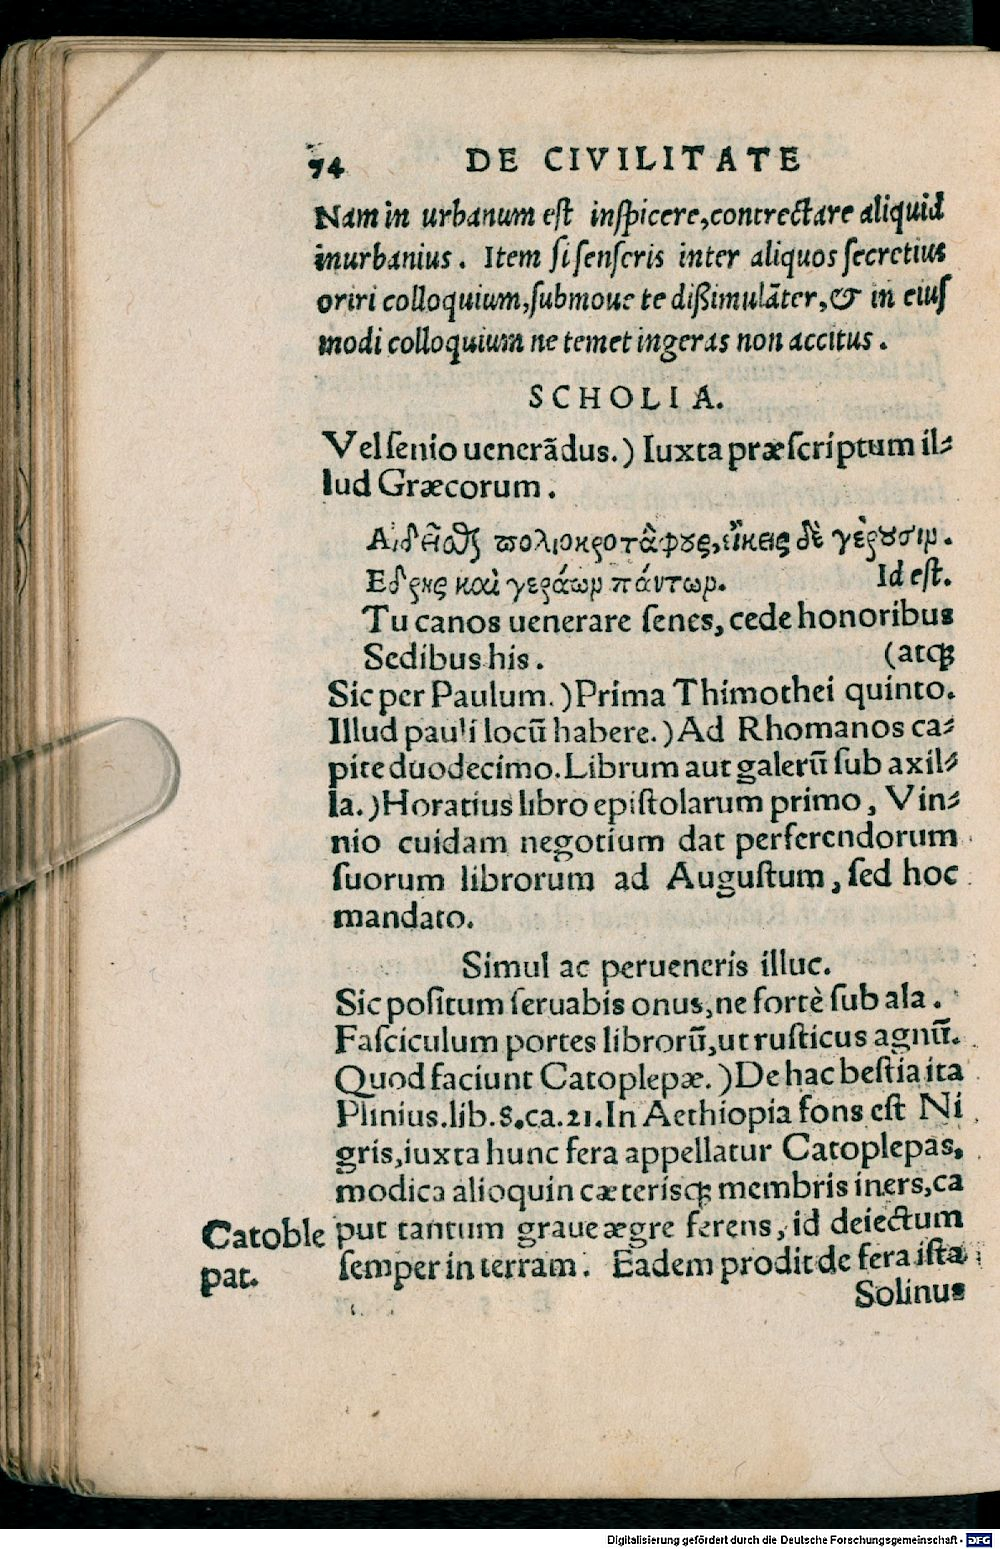 74 DE CIVILITATE
Nam in urbanum eſt inſpicere, contrectare aliquid
inurbanius. Item ſi ſenſeris inter aliquos ſecretius
oriri colloquium, ſubmoue te dißimulãter, & in eiuſ
modi colloquium ne temet ingeras non accitus.
SCHOLIA.
Vel ſenio uenerãdus.) Iuxta præſcriptum il-
lud Græcorum.
Αἰδεῖσθαι πολιοκροτάφους, εἴκειν δὲ γέρουσιν.
Εδρης καὶ γεράων πάντων. Id eſt.
Tu canos uenerare ſenes, cede honoribus
Sedibus his. (atqꝫ
Sic per Paulum.) Prima Thimothei quinto.
Illud pauli locũ habere.) Ad Rhomanos ca-
pite duodecimo. Librum aut galerũ ſub axil-
la.) Horatius libro epiſtolarum primo, Vin-
nio cuidam negotium dat perferendorum
ſuorum librorum ad Auguſtum, ſed hoc
mandato.
Simul ac perueneris illuc.
Sic poſitum ſeruabis onus, ne fortè ſub ala.
Faſciculum portes librorũ, ut ruſticus agnũ.
Quod faciunt Catoplepæ.) De hac beſtia ita
Plinius. lib. 8. ca. 21. In Aethiopia fons eſt Ni
gris, iuxta hunc fera appellatur Catoplepas,
modica alioquin cæterisqꝫ membris iners, ca
Catoble put tantum graue ægre ferens, id deiectum
pat. ſemper in terram. Eadem prodit de fera iſta
Solinus
Digitalisierung gefördert durch die Deutsche Forschungsgemeinschaft - DFG